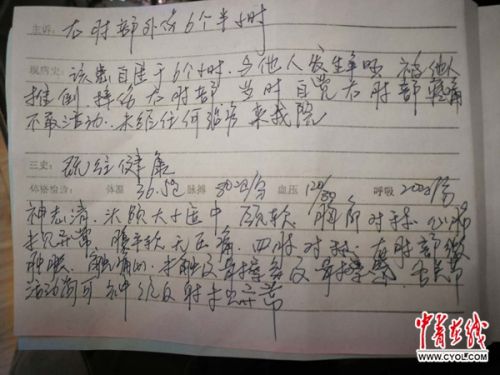 主诉: 右肘部外伤6个半小时
现病史: 该患自述于6个小时,与他人发生争吵 被他人
推倒 摔伤右肘部 当时自觉右肘部疼痛
不敢活动.未经任何治疗来我院
三史: 既往健康
体格检查: 体温 36.5℃ 脉搏 80次/分 血压 120/80 呼吸 20次/分
神志清.头颅大小适中 颈软 胸廓对称.心肺
未见异常.腹平软 无压痛.四肢对称.右肘部
肿胀. 未触及骨擦音及骨擦感.
活动 可 神经反射 异常
中青在线
WWW.CYOL.COM